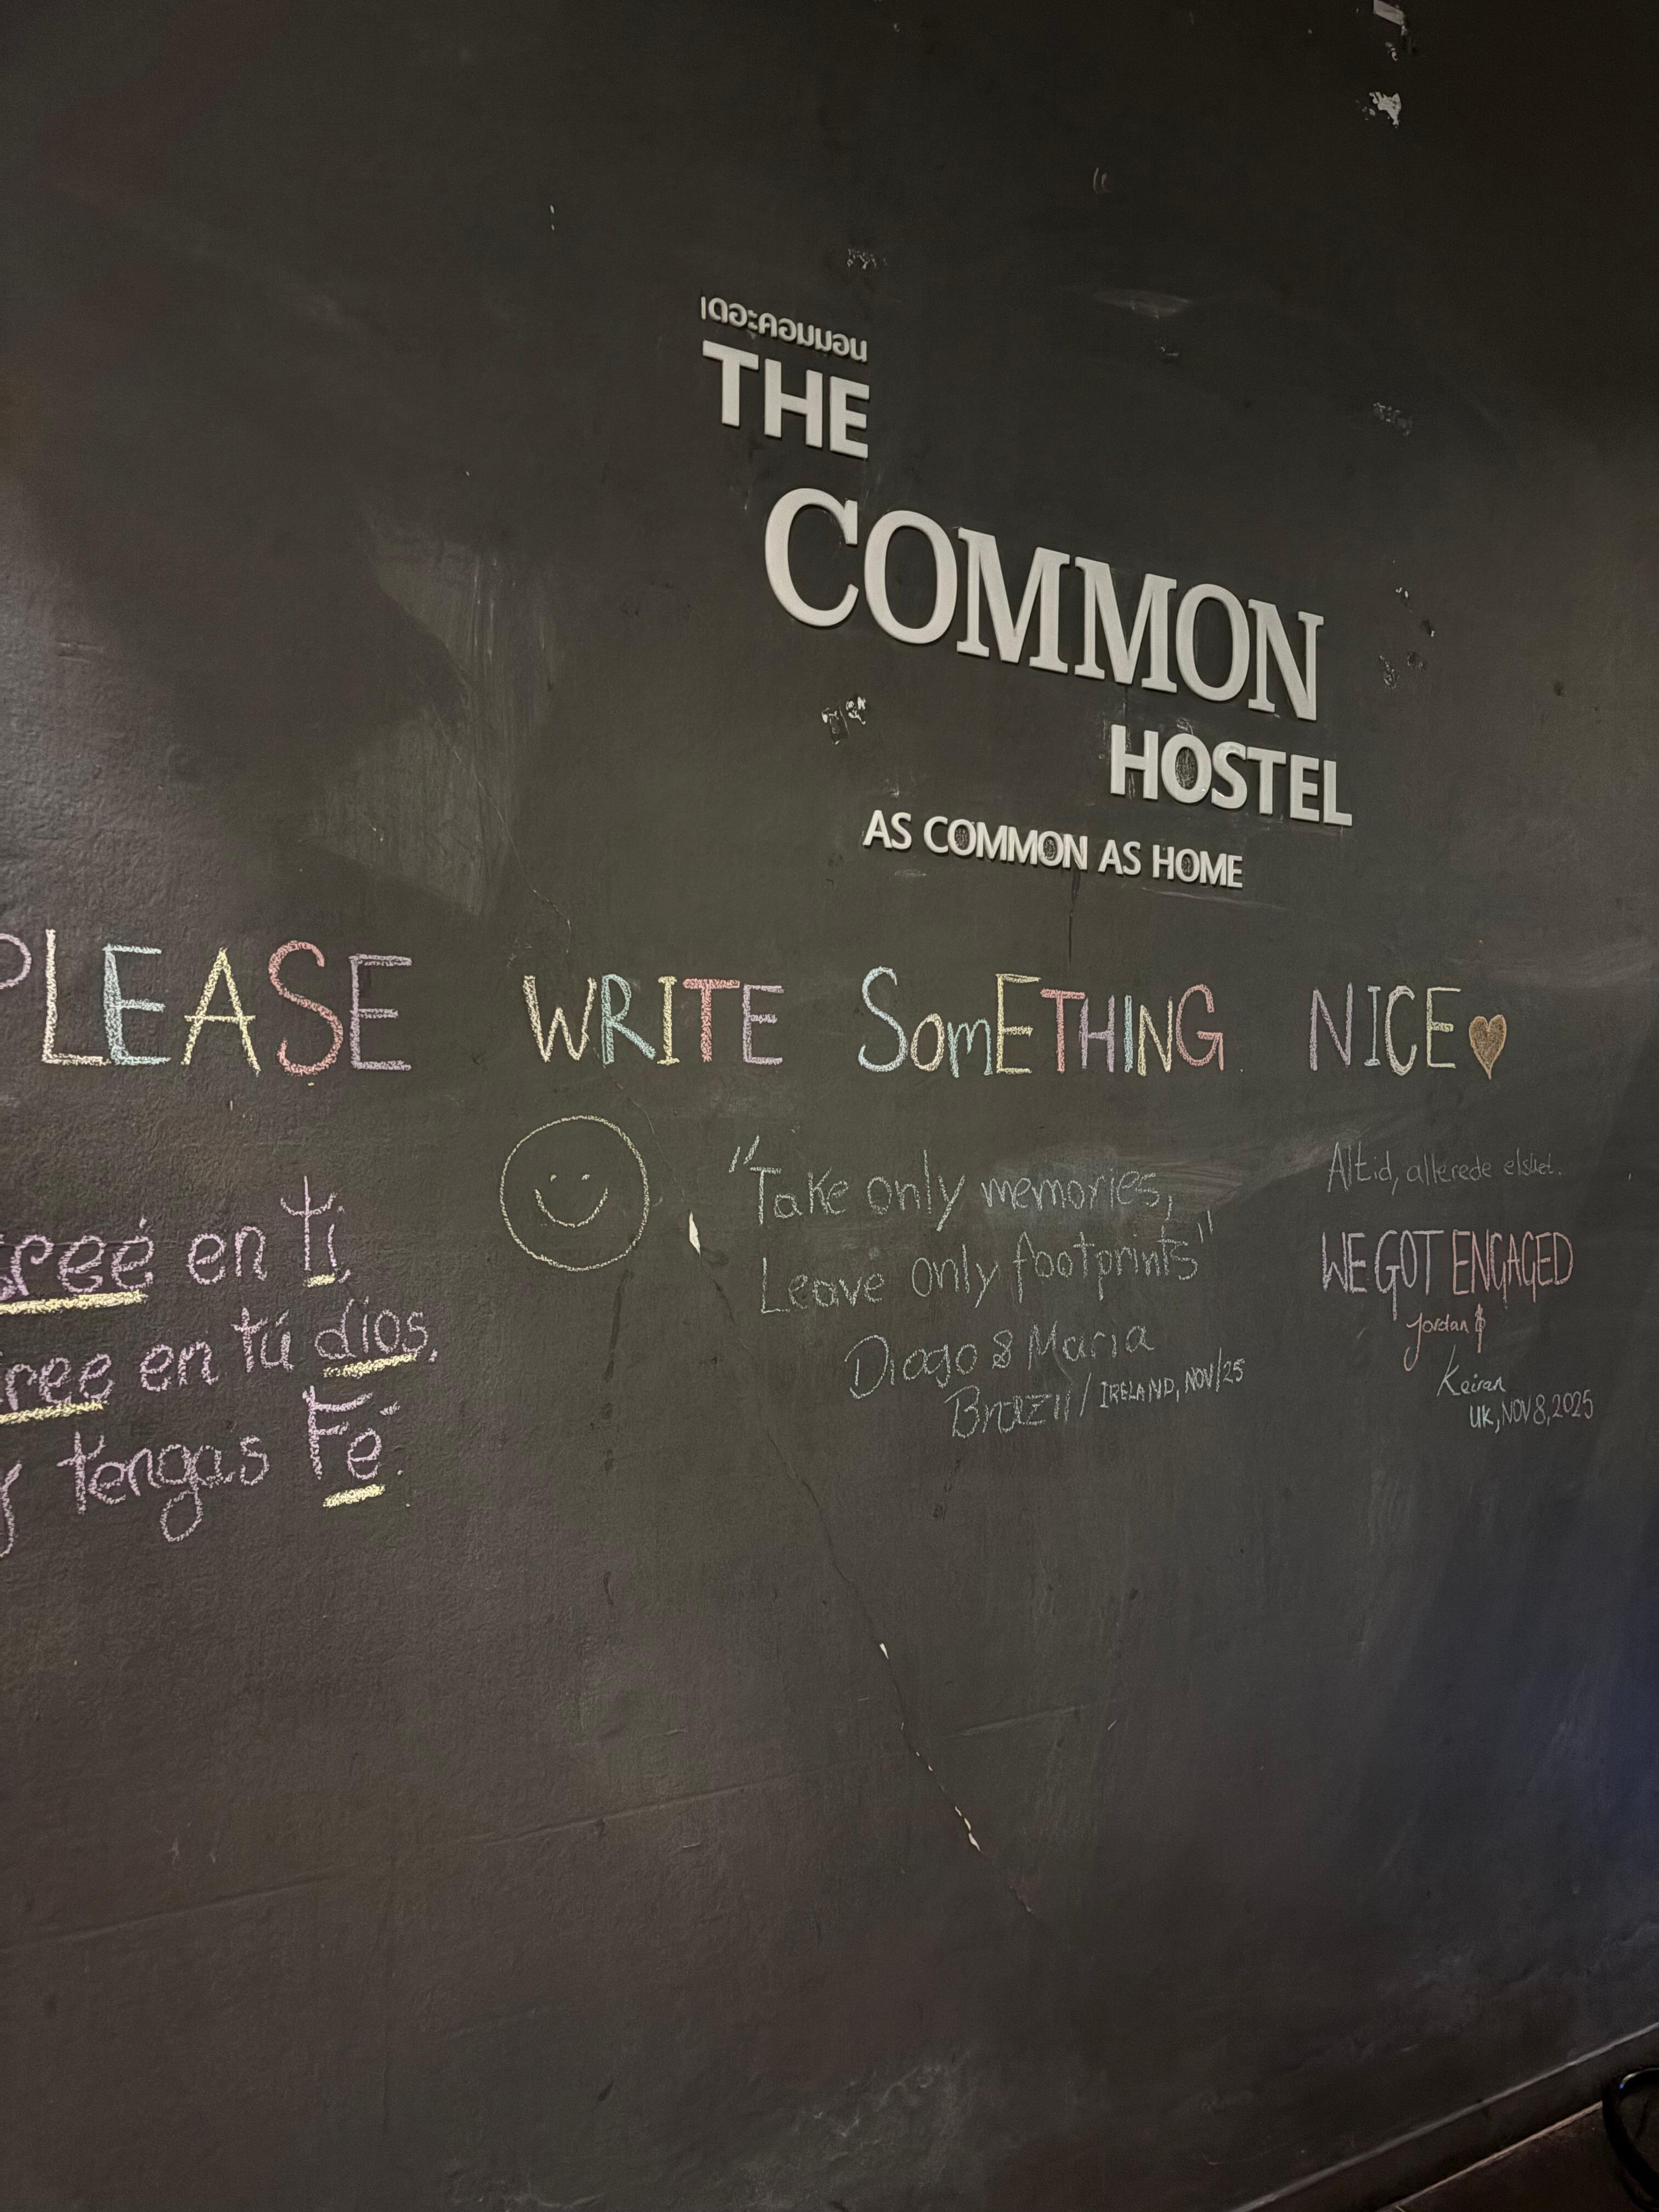 เดอะคอมมอน
THE
COMMON
HOSTEL
AS COMMON AS HOME
PLEASE WRITE SomETHING NICE
creé en ti,
cree en tú dios,
y tengas Fé.
"Take only memories,
Leave only footprints"
Diogo & Maria
Brazil / IRELAND, NOV/25
Altid, allerede elsket.
WE GOT ENGAGED
Jordan &
Keiran
UK, NOV 8, 2025